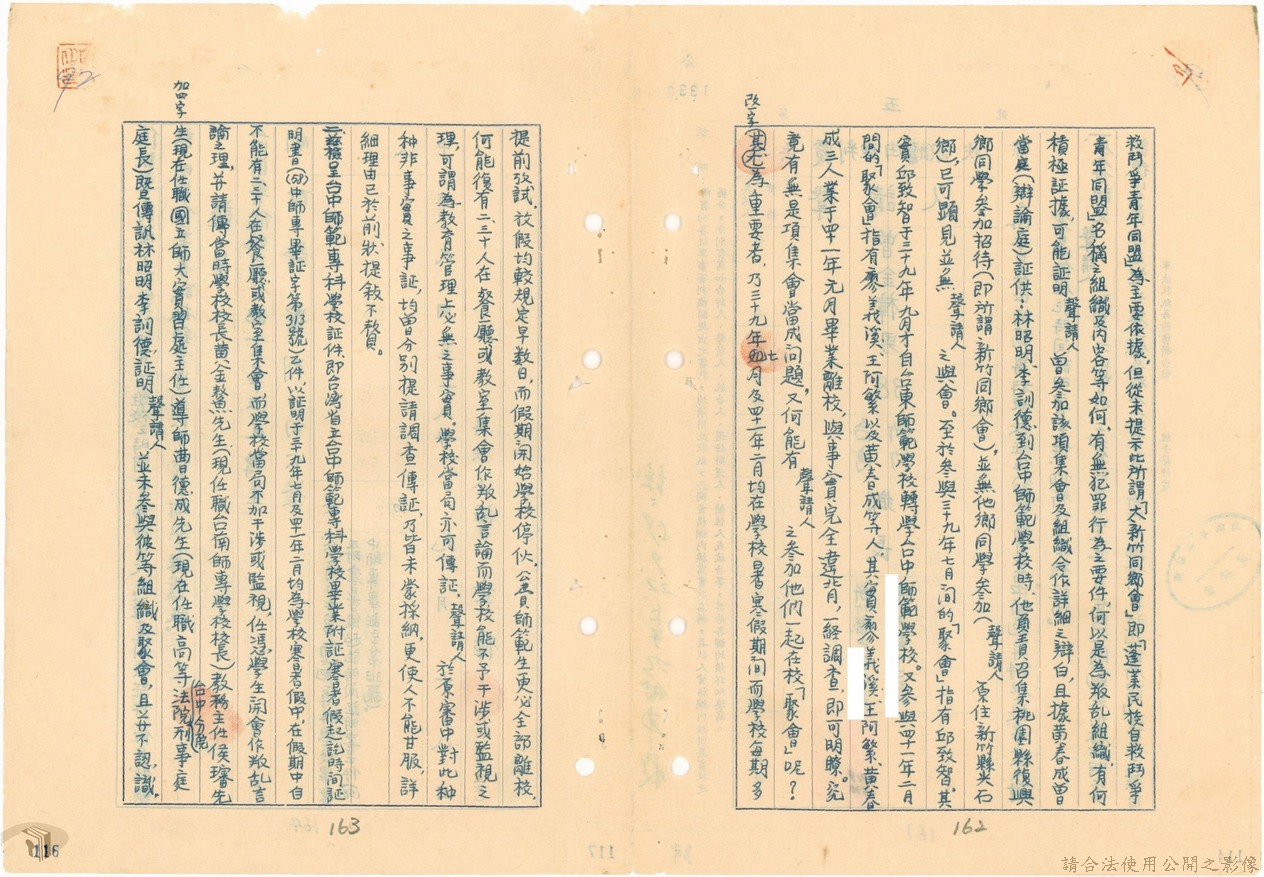 救鬥爭青年同盟」為主要依據,但從未提示此所謂「大新竹同鄉會」即「蓬萊民族自救鬥爭
青年同盟」名稱之組織及內容等如何,有無犯罪行為之要件,何以是為叛乱組織,有何
積極証據,可能証明聲請人曾參加該項集會及組織令作詳細之辯白,且據黃春成曾
當庭(辯論庭)証供:林昭明、李訓德到台中師範學校時,他負責召集桃園縣復興
鄉同學參加招待(即所謂新竹同鄉會),並無他鄉同學參加(聲請人原住新竹縣尖石
鄉),已可顯見並無聲請人之與會。至於參與三十九年七月間的「聚會」指有邱致智,其
實邱致智于三十九年九月才自台東師範學校轉學台中師範學校。又參與四十一年二月
間的「聚會」指有廖義溪、王阿繁以及黃春成等人,其實廖義溪、王阿繁、黃春
成三人業于四十一年元月畢業離校,與事實完全違背,一經調查,即可明瞭。究
竟有無是項集會當成问题,又何能有聲請人之參加他們一起在校「聚會」呢?
改一字
其尤為重要者,乃三十九年七月及四十一年二月均在學校暑寒假期間而學校每期多
162
提前攷試,放假均較規定早數日,而假期開始學校停伙。公費師範生更必全部離校,
何能復有二、三十人在餐廳或教室集會作叛乱言論而學校能不予干涉或監視之
理,可謂為教育管理上必無之事實。學校當局亦可傳証,聲請人於原審中對此種
種非事實之事証,均曾分別提請調查傳証,乃皆未蒙採納,更使人不能甘服,詳
細理由已於前狀提敘不贅。
台中師範專科學校証件,即台灣省立台中師範專科學校畢業附証寒暑假起訖時间証
明書(68)中師專畢証字第313號)乙件,以証明于三十九年七月及四十一年二月均為學校寒暑假中,在假期中自
不能有二、三十人在餐廳或教室集會,而學校當局不加干涉或監視,任憑學生開會作叛乱言
論之理,并請傳當時學校校長黃金鰲先生(現任職台南師專學校校長)教務主任侯璠先
加四字
生(現在任職國立師大實習處主任)導師曲德成先生(現在任職高等法院台中分院刑事庭
庭長)暨傳訊林昭明李訓德,証明聲請人並未參與彼等組織及聚會,且并不認識。
163
116
117
請合法使用公開之影像